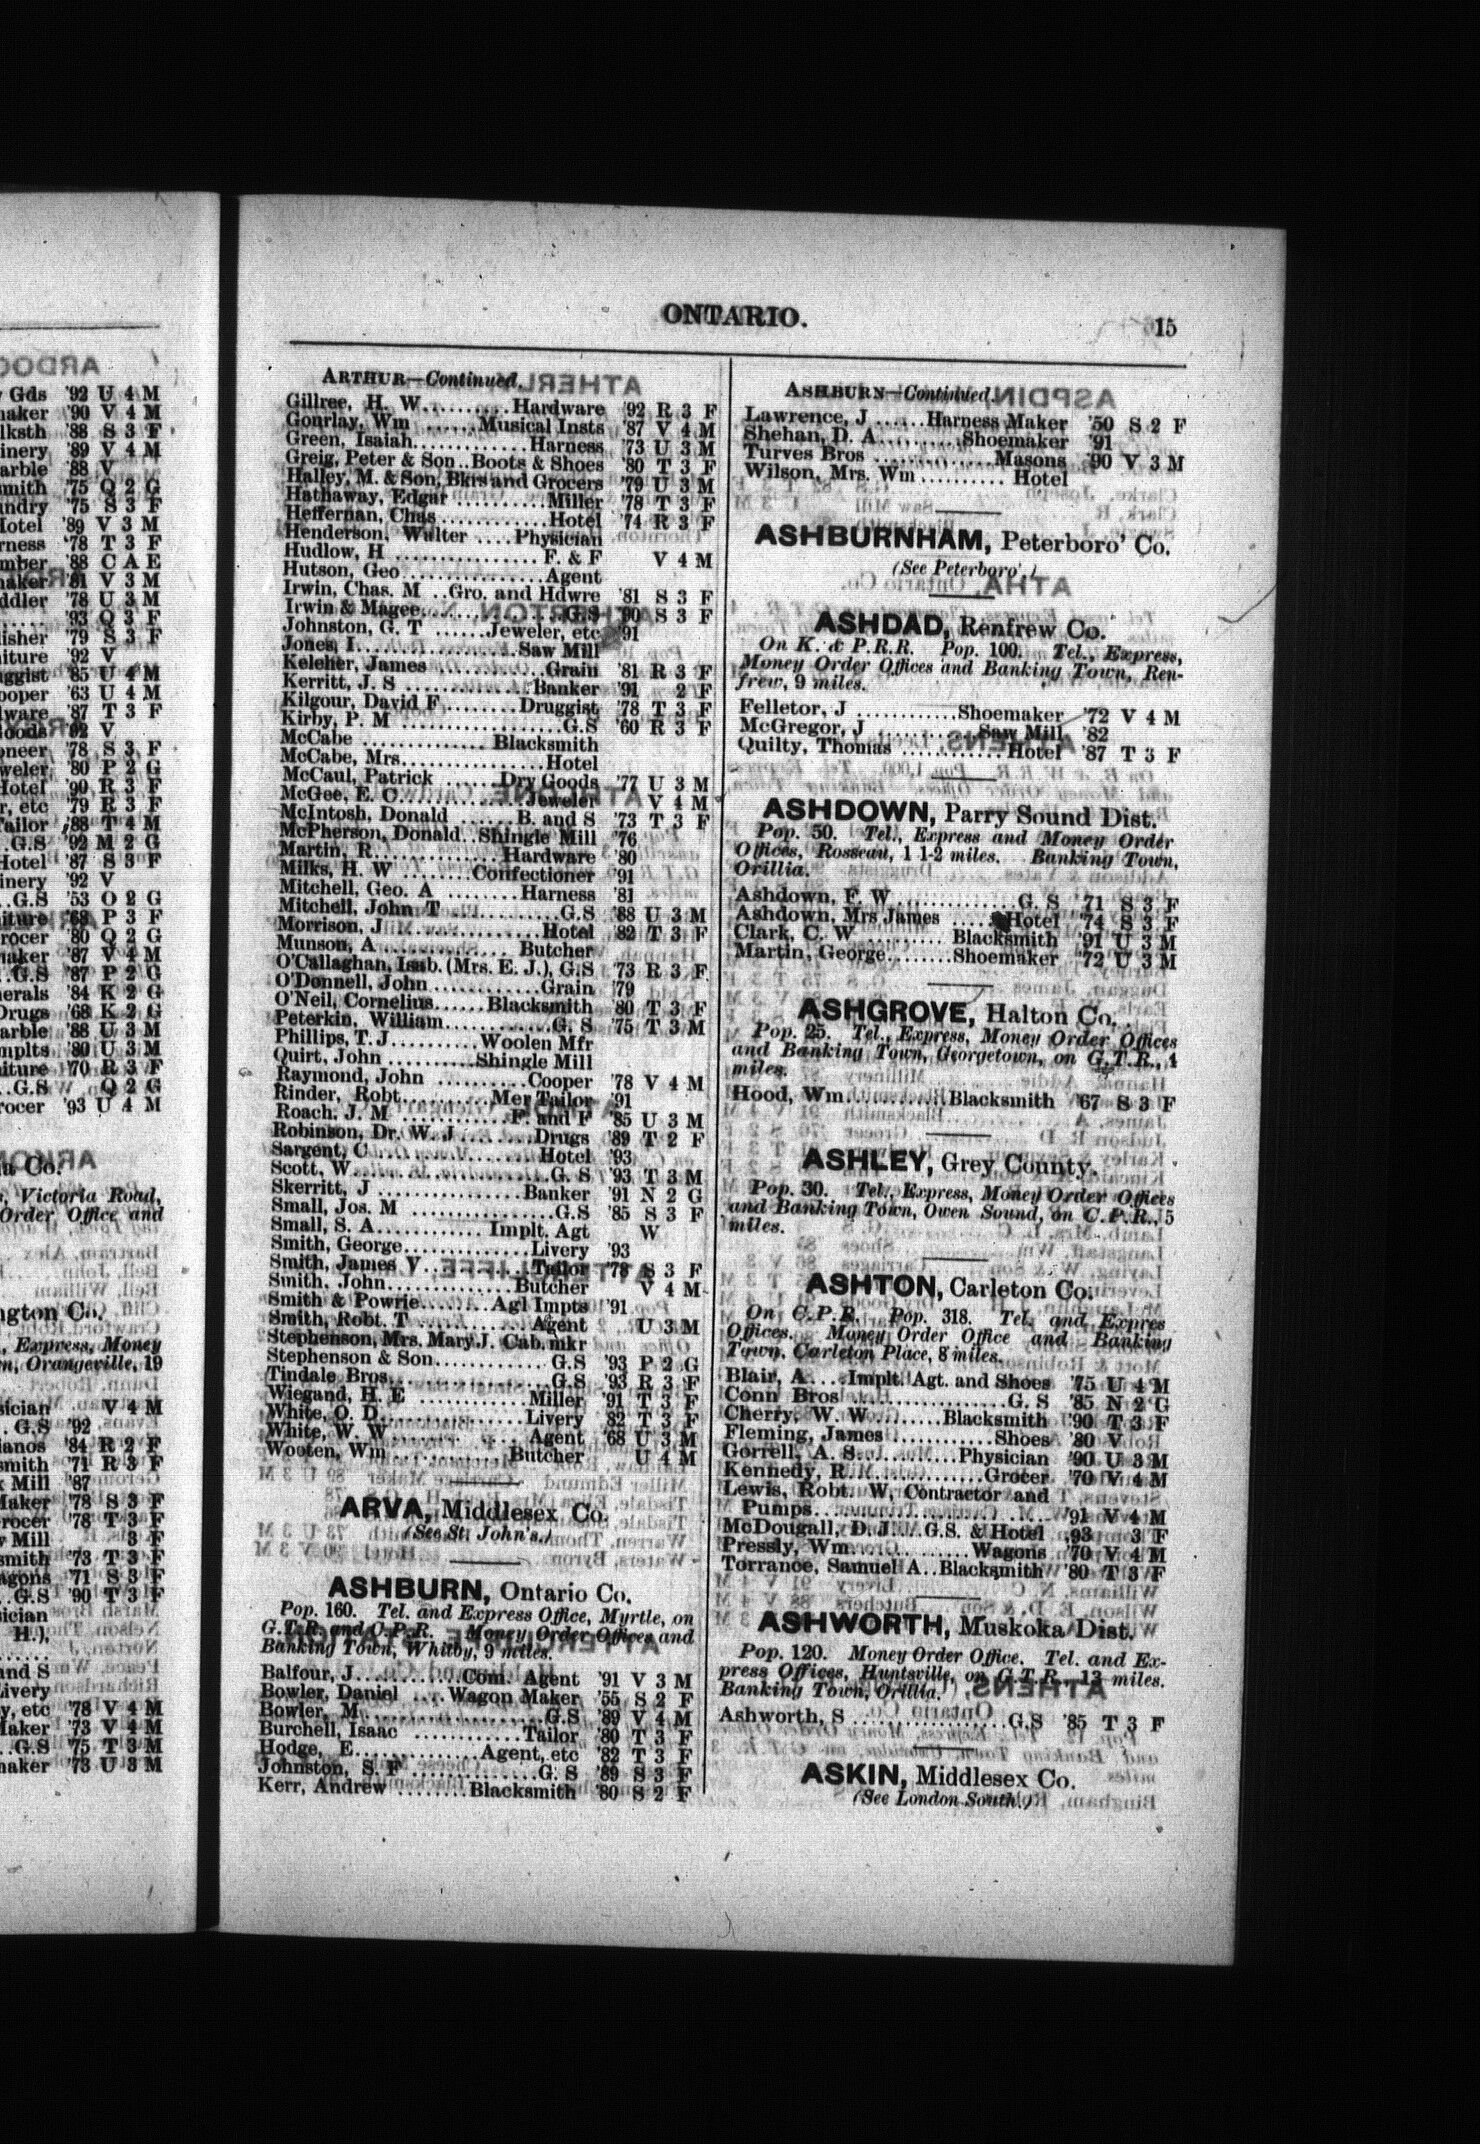 Gds '92 U 4 M
maker '90 V 4 M
lksth '88 S 3 F
inery '89 V 4 M
arble '88 V
smith '75 Q 2 G
undry '75 S 3 F
Hotel '89 V 3 M
rness '78 T 3 F
mber '88 C A E
maker '81 V 3 M
ddler '78 U 3 M
..... '93 Q 3 F
lisher '79 S 3 F
iture '92 V
uggist '85 U 4 M
ooper '63 U 4 M
ware '87 T 3 F
Goods '92 V
oneer '78 S 3 F
weler '80 P 2 G
Hotel '90 R 3 F
r, etc '79 R 3 F
Tailor '88 T 4 M
. G.S '92 M 2 G
Hotel '87 S 3 F
inery '92 V
. G.S '53 O 2 G
iture '68 P 3 F
rocer '80 Q 2 G
maker '87 V 4 M
. G.S '87 P 2 G
nerals '84 K 2 G
Drugs '68 K 2 G
arble '88 U 3 M
mplts '80 U 3 M
iture '70 R 3 F
. G.S Q 2 G
rocer '93 U 4 M
a Co.
, Victoria Road,
Order Office and
ngton Co.
, Express, Money
n, Orangeville, 19
sician V 4 M
. G.S '92
ianos '84 R 2 F
smith '71 R 3 F
Mill '87
Maker '78 S 3 F
rocer '78 T 3 F
Mill 3 F
smith '73 T 3 F
agons '71 S 3 F
. G.S '90 T 3 F
sician
H.),
.....
and S
Livery
y, etc '78 V 4 M
Maker '73 V 4 M
. G.S '75 T 3 M
maker '73 U 3 M
ONTARIO.
15
ARTHUR—Continued.
Gillree, H. W.........Hardware '92 R 3 F
Gourlay, Wm ......Musical Insts '87 V 4 M
Green, Isaiah...........Harness '73 U 3 M
Greig, Peter & Son..Boots & Shoes '80 T 3 F
Halley, M. & Son, Bkrs and Grocers '79 U 3 M
Hathaway, Edgar .........Miller '78 T 3 F
Heffernan, Chas..........Hotel '74 R 3 F
Henderson, Walter ....Physician
Hudlow, H .............F. & F V 4 M
Hutson, Geo.............Agent
Irwin, Chas. M ..Gro. and Hdwre '81 S 3 F
Irwin & Magee.............G.S '90 S 3 F
Johnston, G. T ......Jeweler, etc '91
Jones, I...............Saw Mill
Keleher, James...........Grain '81 R 3 F
Kerritt, J. S ............Banker '91 2 F
Kilgour, David F........Druggist '78 T 3 F
Kirby, P. M ...............G.S '60 R 3 F
McCabe ............Blacksmith
McCabe, Mrs.............Hotel
McCaul, Patrick ......Dry Goods '77 U 3 M
McGee, E. C............Jeweler V 4 M
McIntosh, Donald ......B. and S '73 T 3 F
McPherson, Donald..Shingle Mill '76
Martin, R............Hardware '80
Milks, H. W .......Confectioner '91
Mitchell, Geo. A ........Harness '81
Mitchell, John T ............G.S '88 U 3 M
Morrison, J ..............Hotel '82 T 3 F
Munson, A .............Butcher
O'Callaghan, Isab. (Mrs. E. J.), G.S '73 R 3 F
O'Donnell, John..........Grain '79
O'Neil, Cornelius.....Blacksmith '80 T 3 F
Peterkin, William..........G. S '75 T 3 M
Phillips, T. J.........Woolen Mfr
Quirt, John ........Shingle Mill
Raymond, John .........Cooper '78 V 4 M
Rinder, Robt.........Mer Tailor '91
Roach, J. M ...........F. and F '85 U 3 M
Robinson, Dr. W. J........Drugs '89 T 2 F
Sargent, C ..............Hotel '93
Scott, W................G. S '93 T 3 M
Skerritt, J ..............Banker '91 N 2 G
Small, Jos. M ..............G.S '85 S 3 F
Small, S. A..........Implt. Agt W
Smith, George............Livery '93
Smith, James V ..........Tailor '78 S 3 F
Smith, John............Butcher V 4 M
Smith & Powrie.......Agl Impts '91
Smith, Robt. T ..........Agent U 3 M
Stephenson, Mrs. Mary J. Cab. mkr
Stephenson & Son..........G.S '93 P 2 G
Tindale Bros..............G.S '93 R 3 F
Wiegand, H. E ..........Miller '91 T 3 F
White, O. D.............Livery '82 T 3 F
White, W. W.............Agent '68 U 3 M
Wooten, Wm ...........Butcher U 4 M
ARVA, Middlesex Co.
(See St. John's.)
ASHBURN, Ontario Co.
Pop. 160. Tel. and Express Office, Myrtle, on
G.T.R. and C.P.R. Money Order Offices and
Banking Town, Whitby, 9 miles.
Balfour, J..........Com. Agent '91 V 3 M
Bowler, Daniel ....Wagon Maker '55 S 2 F
Bowler, M..................G.S '89 V 4 M
Burchell, Isaac ..........Tailor '80 T 3 F
Hodge, E............Agent, etc '82 T 3 F
Johnston, S. F ............G. S '89 S 3 F
Kerr, Andrew ........Blacksmith '80 S 2 F
ASHBURN—Continued.
Lawrence, J ......Harness Maker '50 S 2 F
Shehan, D. A.........Shoemaker '91
Turves Bros .............Masons '90 V 3 M
Wilson, Mrs. Wm .......... Hotel
ASHBURNHAM, Peterboro' Co.
(See Peterboro'.)
ASHDAD, Renfrew Co.
On K. & P.R.R. Pop. 100. Tel., Express,
Money Order Offices and Banking Town, Ren-
frew, 9 miles.
Felletor, J ...........Shoemaker '72 V 4 M
McGregor, J ..........Saw Mill '82
Quilty, Thomas ...........Hotel '87 T 3 F
ASHDOWN, Parry Sound Dist.
Pop. 50. Tel., Express and Money Order
Offices, Rosseau, 1 1-2 miles. Banking Town,
Orillia.
Ashdown, F. W............G. S '71 S 3 F
Ashdown, Mrs James .....Hotel '74 S 3 F
Clark, C. W......... Blacksmith '91 U 3 M
Martin, George.......Shoemaker '72 U 3 M
ASHGROVE, Halton Co.
Pop. 25. Tel., Express, Money Order Offices
and Banking Town, Georgetown, on G.T.R., 4
miles.
Hood, Wm..........Blacksmith '67 S 3 F
ASHLEY, Grey County.
Pop. 30. Tel., Express, Money Order Offices
and Banking Town, Owen Sound, on C.P.R., 5
miles.
ASHTON, Carleton Co.
On C.P.R. Pop. 318. Tel. and Expres
Offices. Money Order Office and Banking
Town, Carleton Place, 8 miles.
Blair, A....Implt. Agt. and Shoes '75 U 4 M
Conn Bros ................G. S '85 N 2 G
Cherry, W. W.......Blacksmith '90 T 3 F
Fleming, James ...........Shoes '80 V
Gorrell, A. S.........Physician '90 U 3 M
Kennedy, R .............Grocer '70 V 4 M
Lewis, Robt. W, Contractor and
Pumps..................... '91 V 4 M
McDougall, D. J....G.S. & Hotel '93 3 F
Pressly, Wm............Wagons '70 V 4 M
Torrance, Samuel A..Blacksmith '80 T 3 F
ASHWORTH, Muskoka Dist.
Pop. 120. Money Order Office. Tel. and Ex-
press Offices, Huntsville, on G.T.R., 13 miles.
Banking Town, Orillia.
Ashworth, S ...............G.S '85 T 3 F
ASKIN, Middlesex Co.
(See London South.)